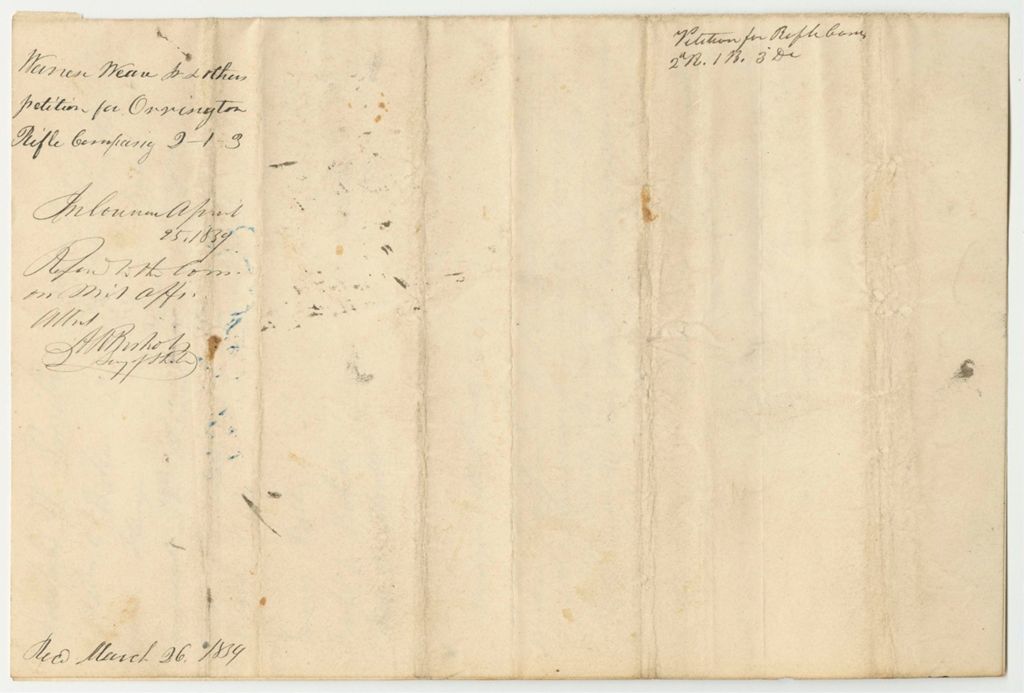 Warren Ware Jr & others
petition for Orrington
Rifle Company 2-1-3
In Council April
25, 1839
Referd to the Com.
on Mil Affs.
Attest
Secy of State
Recd March 26. 1839
Petition for Rifle Comy
2d R. 1 B. 3d Di